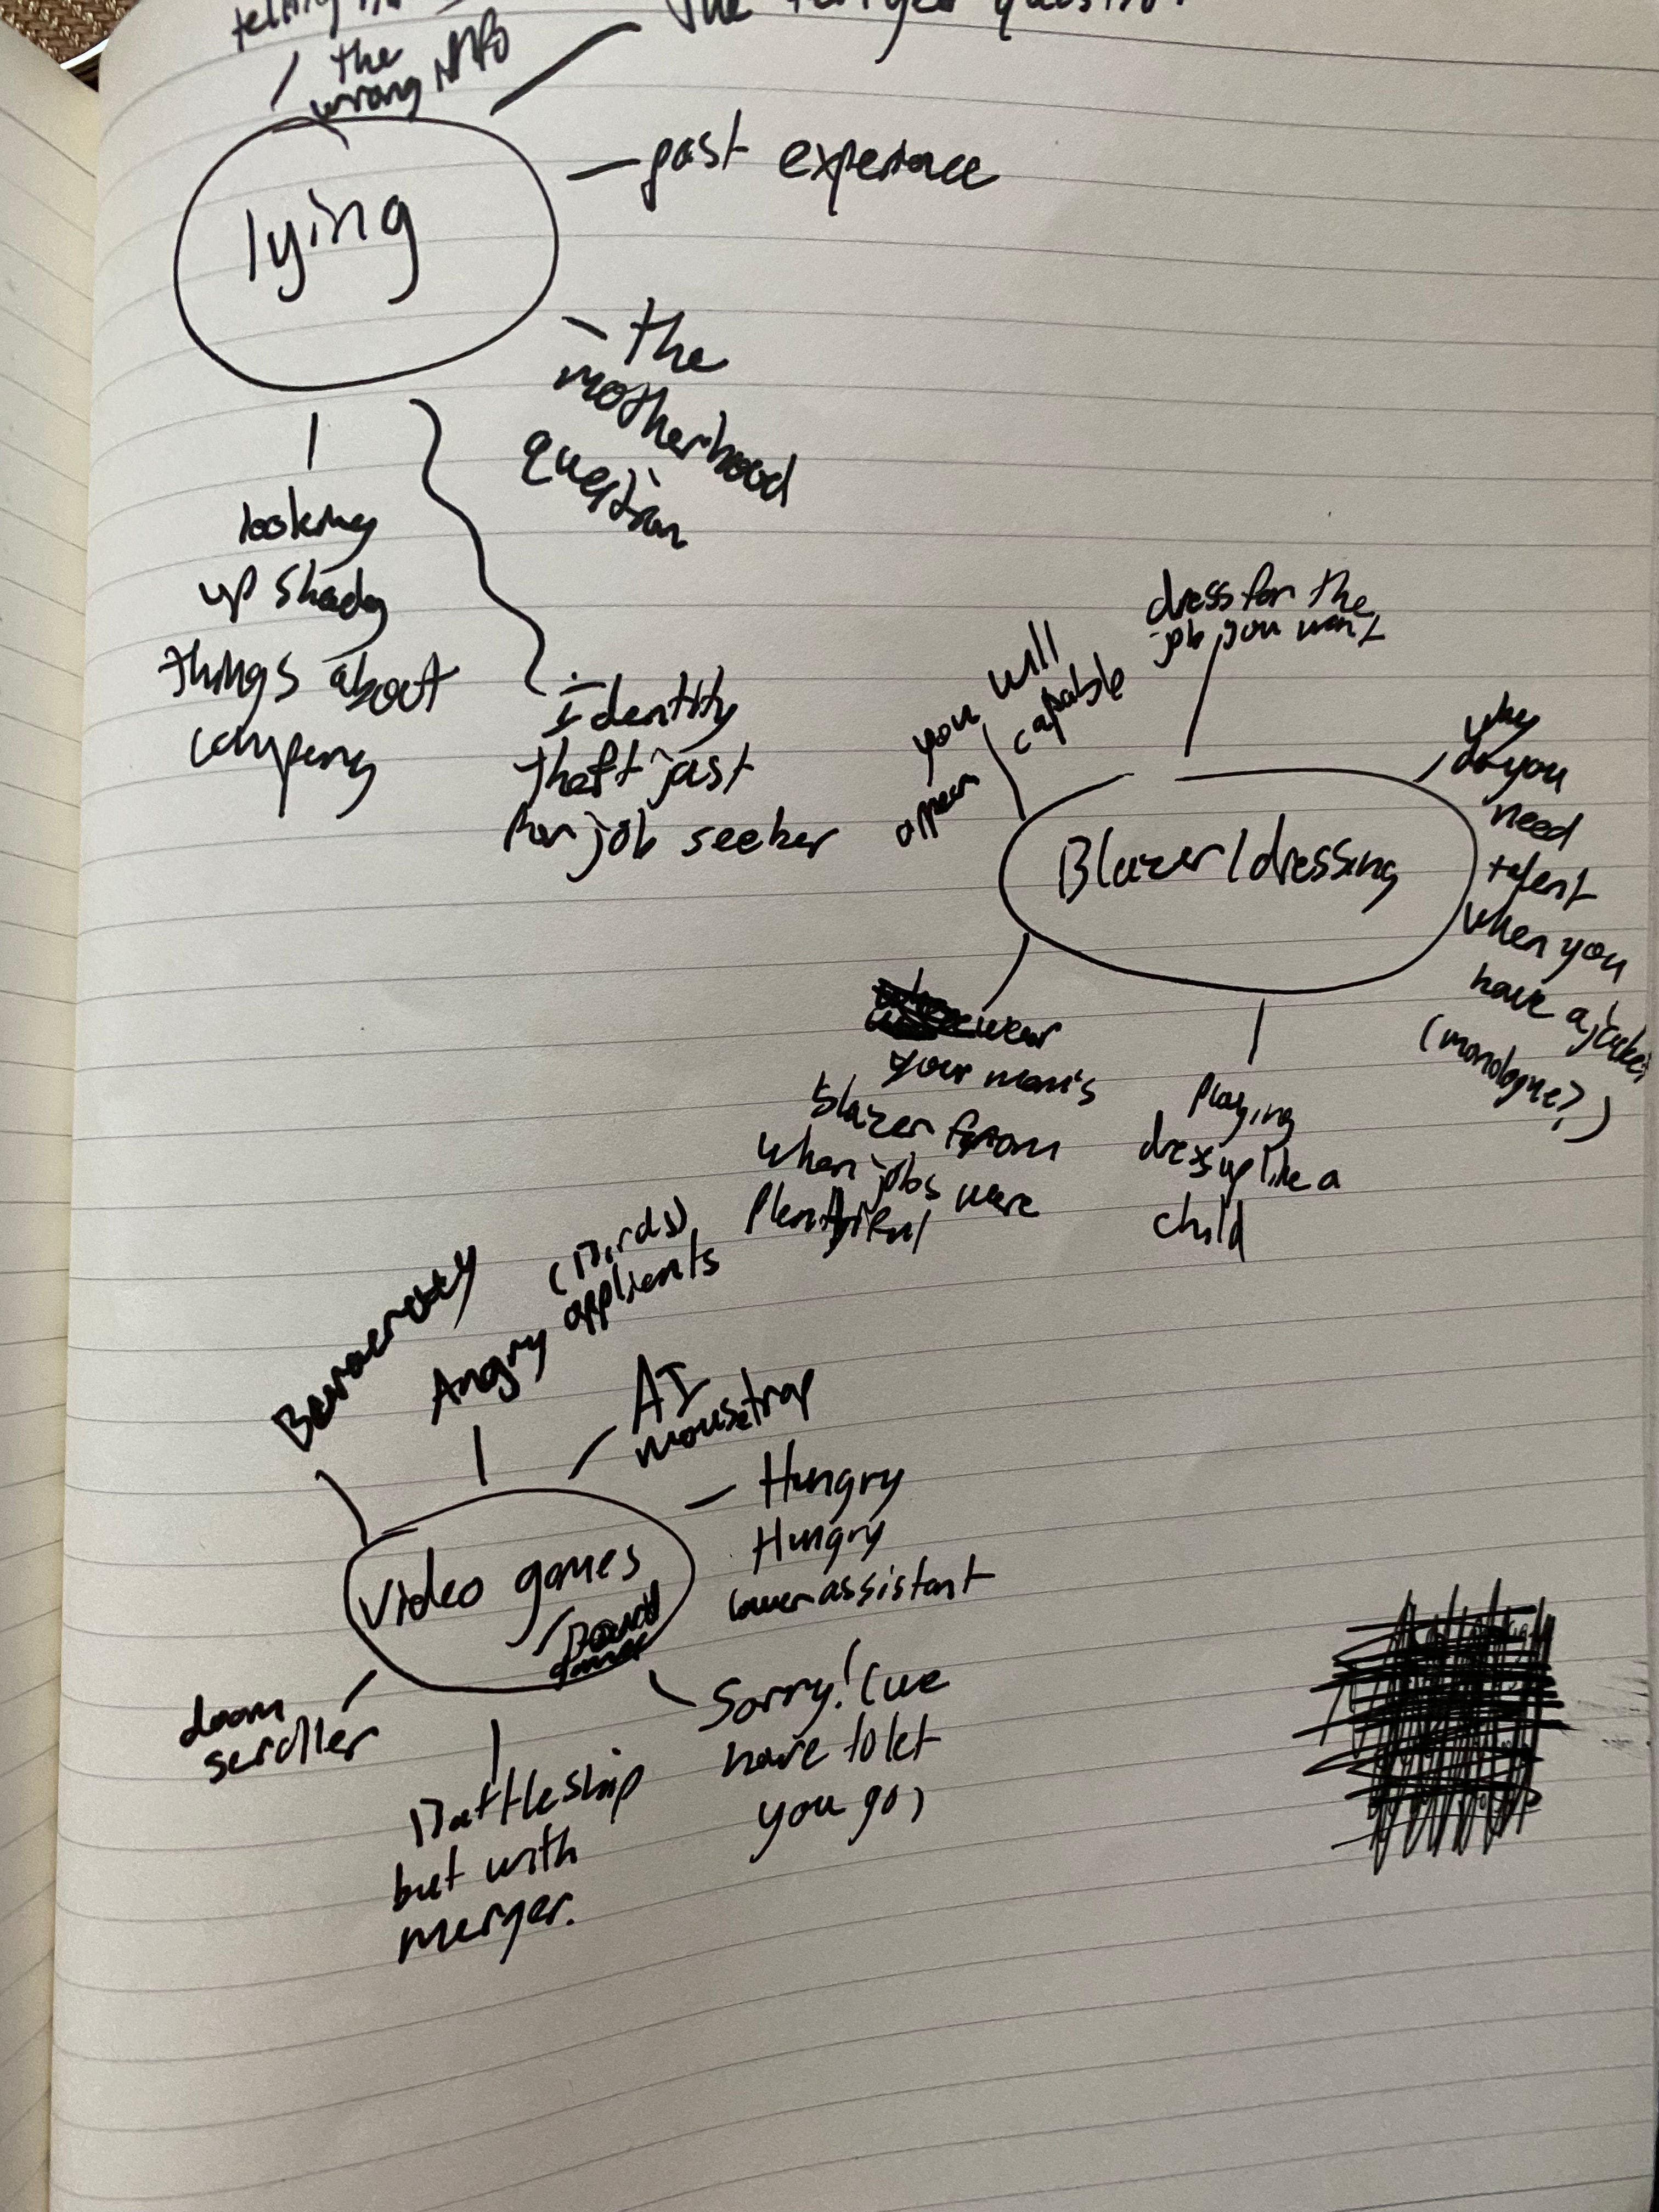 the
wrong info
question
past experience
lying
the
motherhood
question
looking
up shady
things about
company
identity
theft just
for job seeker
you will
appear capable
dress for the
job you want
why
do you
need
talent
when you
have a jacket
(monologue?)
Blazer/dressing
wear
your mom's
blazer from
when jobs were
plentiful
playing
dress up like a
child
Angry (Birds)
applicants
AI
mousetrap
Hungry
Hungry
assistant
video games
/Board
games
doom
scroller
Battleship
but with
merger.
Sorry! (we
have to let
you go)